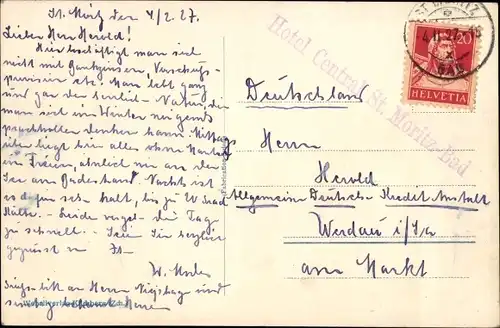 St. Moritz den 4/2. 27.
Lieber Herr Herold!
Hier beschäftigt man sich
nicht mit Bankzinsen, Vorschuss-
provision etc. Man lebt ganz
und gar der herrlich. Natur, die
man sich im Winter nirgends
prachtvoller denken kann. Mittags
über liegt hier alles ohne Mantel
im Freien, ähnlich wie an der
See am Badestrand. Nachts ist
es dafür sehr kalt, bis zu Grad
Kälte. Leider vergeht die Tag
zu schnell. Seien Sie herzlich
gegrüsst von
W.
an Herrn und
Deutschland
Herrn
Herold
Allgemeine Deutsche Kredit-Anstalt
Werdau i/Sa
am Markt
Hotel Central St. Moritz-Bad
ST. MORITZ
BAD
20
HELVETIA